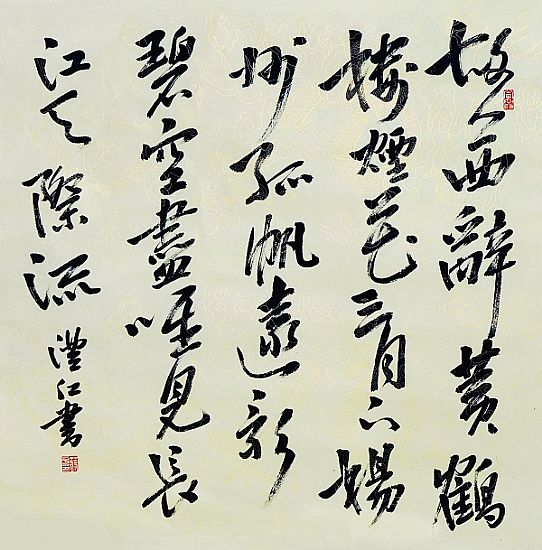 故人西辭黃鶴
樓煙花三月下揚
州孤帆遠影
碧空盡唯見長
江天際流
澧江書